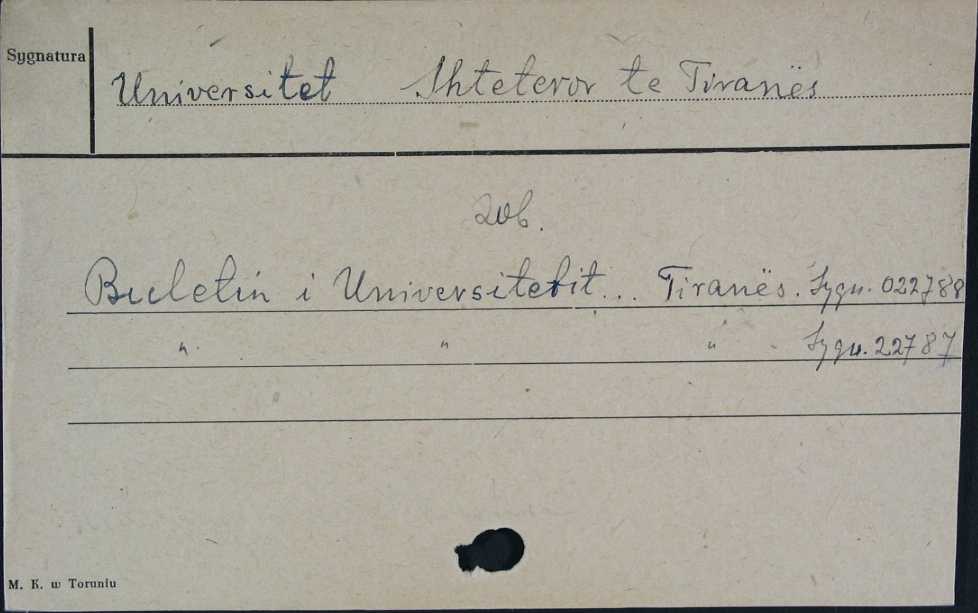 Sygnatura
Universitet Shteteror te Tiranës
zob.
Buletin i Universitetit... Tiranës. Sygn. 022788
" " " Sygn. 22787
M. K. w Toruniu